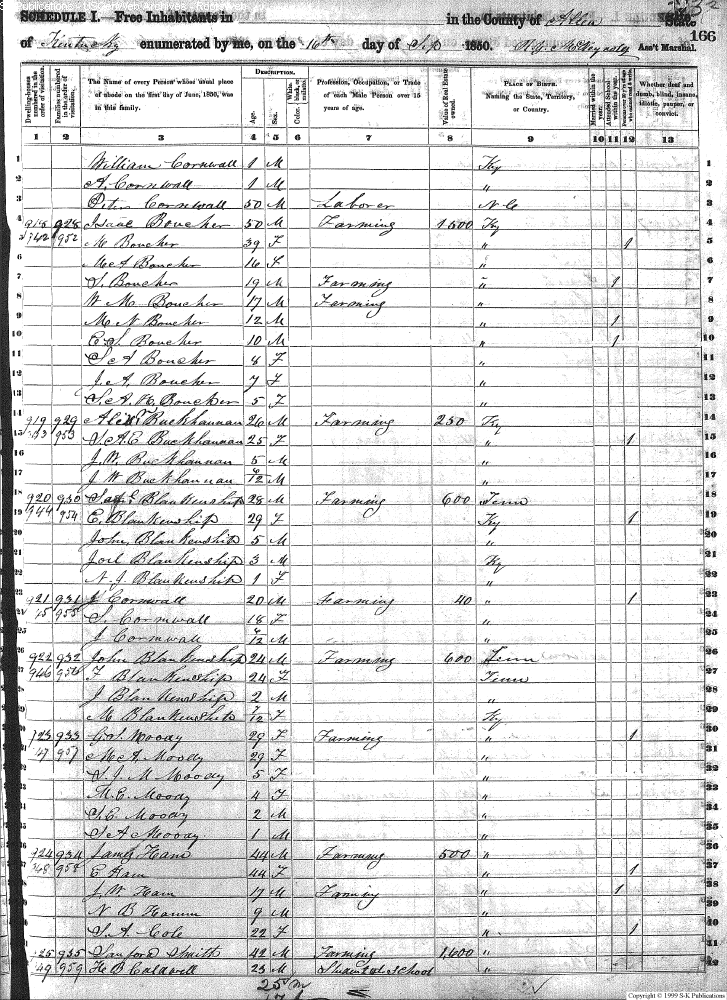 SCHEDULE I.—Free Inhabitants in in the County of Allen State
166
of Kentucky enumerated by me, on the 16th day of Sep 1850. Ass't Marshal.
Dwelling-houses numbered in the order of visitation.
Families numbered in the order of visitation.
The Name of every Person whose usual place of abode on the first day of June, 1850, was in this family.
DESCRIPTION.
Age.
Sex.
White, Color, black, or mulatto.
Profession, Occupation, or Trade of each Male Person over 15 years of age.
Value of Real Estate owned.
PLACE OF BIRTH. Naming the State, Territory, or Country.
Married within the year.
Attended School within the year.
Whether deaf and dumb, blind, insane, idiotic, pauper, or convict.
1 2 3 4 5 6 7 8 9 10 11 12 13
1 William Cornwall 1 M Ky 1
2 A. Cornwall 1 M " 2
3 Peter Cornwall 50 M Laborer N C 3
4 918 928 Isaac Boucher 50 M Farming 1500 Ky 4
5 942 952 M Boucher 39 F " 1 5
6 M A Boucher 16 F " 6
7 S. Boucher 19 M Farming " 1 7
8 W M Boucher 17 M Farming " 8
9 M N Boucher 12 M " 1 9
10 E. S. Boucher 10 M " 1 10
11 S A Boucher 8 F " 11
12 J. A. Boucher 7 F " 12
13 S. A. H. Boucher 5 F " 13
14 919 929 Buckhannan 26 M Farming 250 Ky 14
15 953 S. A. E. Buckhannan 25 F " 1 15
16 J. W. Buckhannan 5 M " 16
17 J W Buckhannan 6/12 M " 17
18 920 930 Blankenship 28 M Farming 600 Tenn 18
19 944 954 E. Blankenship 29 F Ky 1 19
20 John Blankenship 5 M " 20
21 Joel Blankenship 3 M Ky 21
22 N. J. Blankenship 1 F " 22
23 921 931 J Cornwall 20 M Farming 40 " 1 23
24 45 955 S. Cornwall 18 F " 24
25 J Cornwall 6/12 M " 25
26 922 932 John Blankenship 24 M Farming 600 Tenn 26
27 946 956 F Blankenship 24 F Tenn 27
28 J Blankenship 2 M " 28
29 M Blankenship 7/12 F Ky 29
30 923 933 Moody 29 F Farming " 1 30
31 47 957 M A Moody 29 F " 31
32 S. J. M Moody 5 F " 32
33 M. E. Moody 4 F " 33
34 S. E Moody 2 M " 34
35 S A Moody 1 M " 35
36 924 934 James Ham 44 M Farming 500 " 36
37 48 958 E Ham 44 F " 1 37
38 J. W Ham 17 M Farming " 1 38
39 N B Hamm 9 M " 39
40 S. A. Cole 22 F " 1 40
41 925 935 Sanford Smith 42 M Farming 1,600 " 41
42 49 959 H B Caldwell 23 M Student at school " 42
25 m
Copyright © 1999 S-K Publications